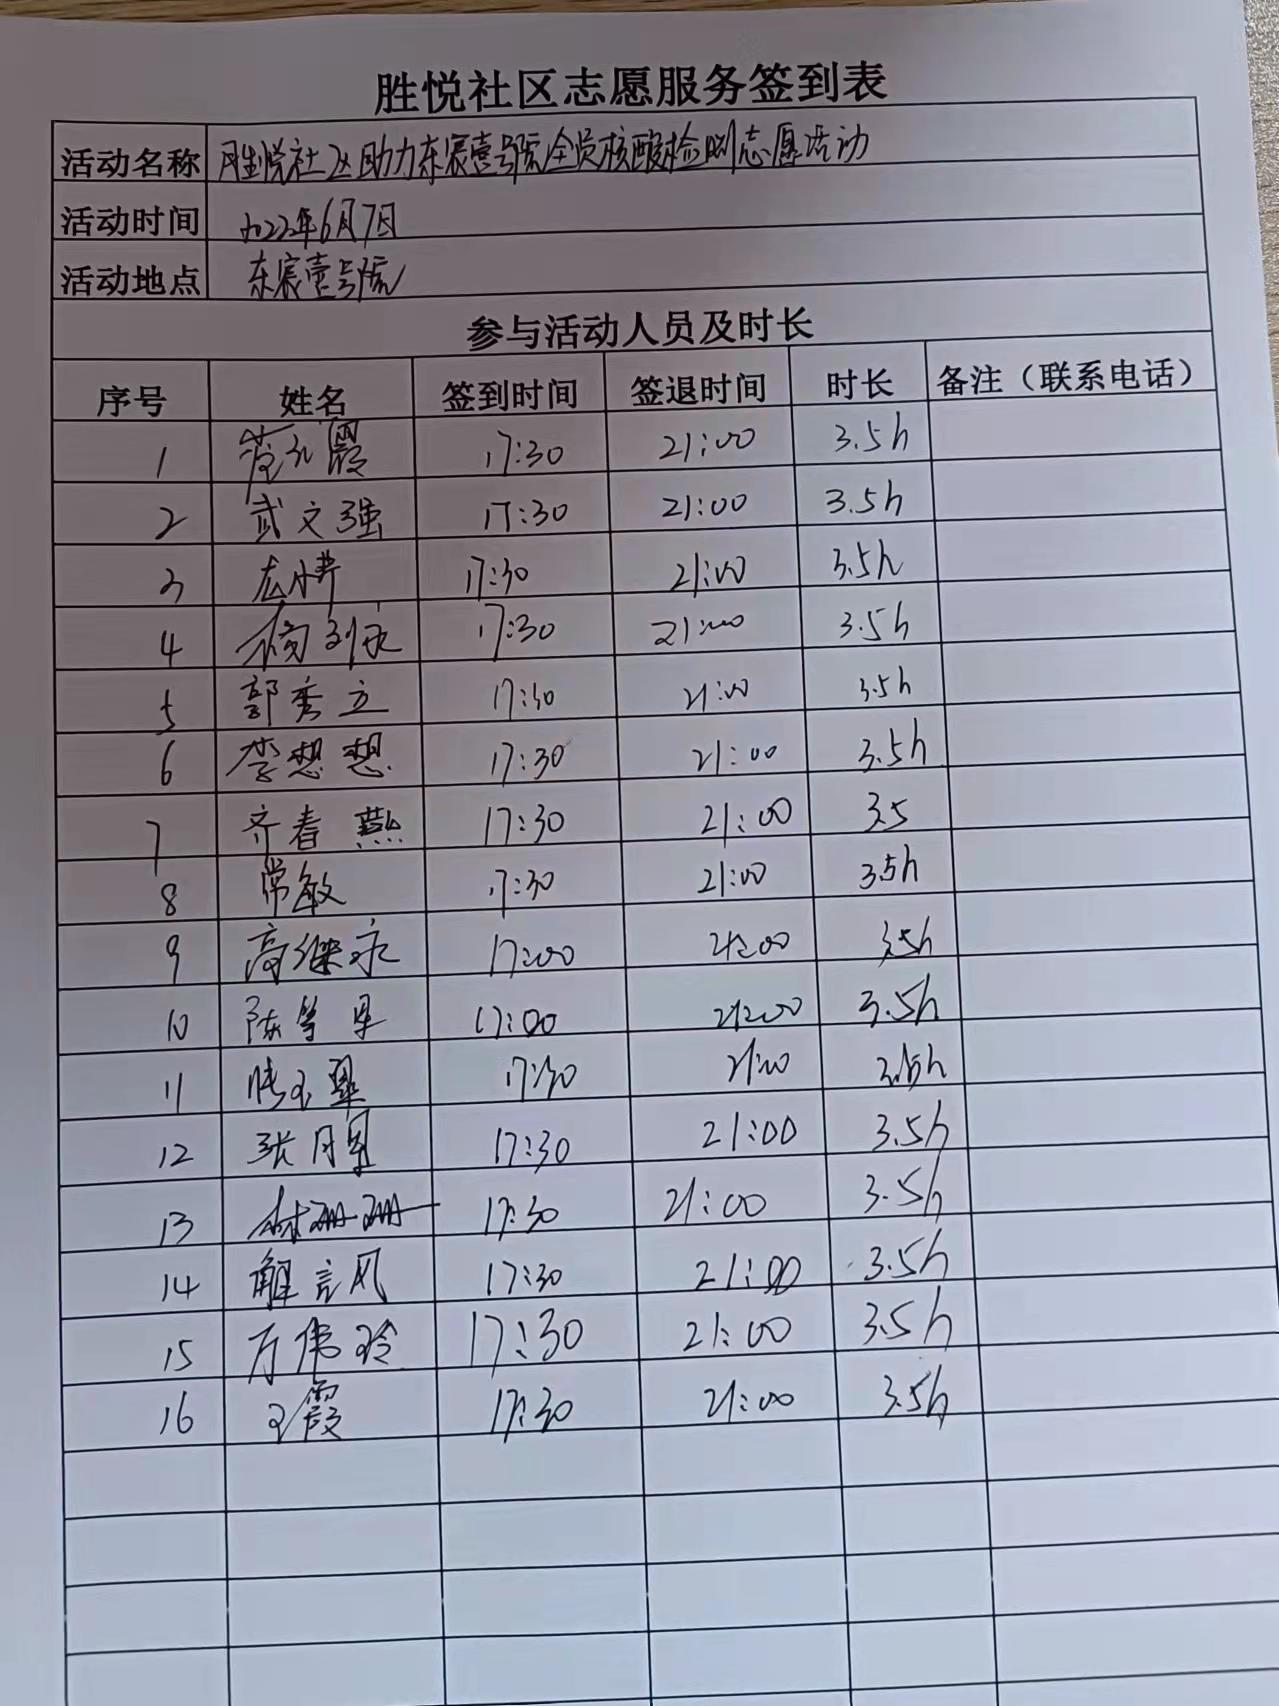 胜悦社区志愿服务签到表
活动名称 胜悦社区助力东宸壹号院全员核酸检测志愿活动
活动时间 2022年6月7日
活动地点 东宸壹号院
参与活动人员及时长
序号 姓名 签到时间 签退时间 时长 备注（联系电话）
1 霞 17:30 21:00 3.5h
2 武文强 17:30 21:00 3.5h
3 17:30 21:00 3.5h
4 17:30 21:00 3.5h
5 郭秀立 17:30 21:00 3.5h
6 李想想 17:30 21:00 3.5h
7 齐春燕 17:30 21:00 3.5
8 常敏 17:30 21:00 3.5h
9 高继永 17:00 21:00 3.5h
10 陈 17:00 21:00 3.5h
11 翠 17:30 21:00 3.5h
12 张月 17:30 21:00 3.5h
13 林珊珊 17:30 21:00 3.5h
14 解言风 17:30 21:00 3.5h
15 万伟玲 17:30 21:00 3.5h
16 王霞 17:30 21:00 3.5h